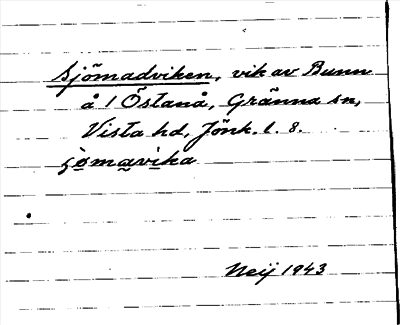 Sjömadviken, vik av Bunn
å 1 Östanå, Gränna sn,
Vista hd, Jönk. l. 8.
ʃömavika
Neij 1943